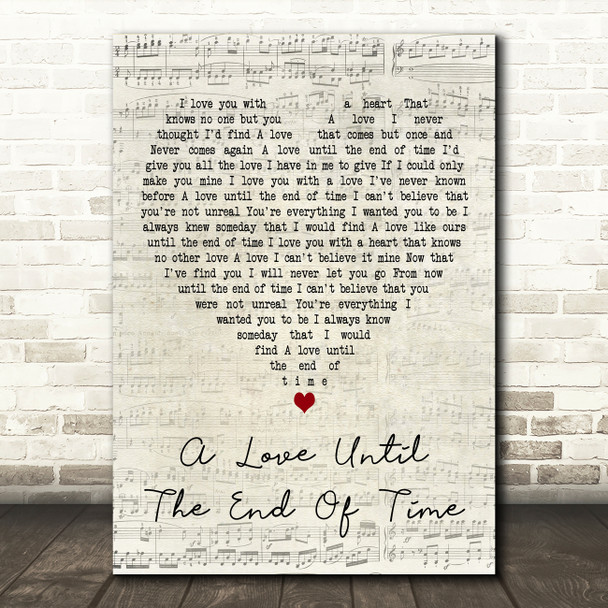 I love you with a heart That
knows no one but you A love I never
thought I'd find A love that comes but once and
Never comes again A love until the end of time I'd
give you all the love I have in me to give If I could only
make you mine I love you with a love I've never known
before A love until the end of time I can't believe that
you're not unreal You're everything I wanted you to be I
always knew someday that I would find A love like ours
until the end of time I love you with a heart that knows
no other love A love I can't believe it mine Now that
I've find you I will never let you go From now
until the end of time I can't believe that you
were not unreal You're everything I
wanted you to be I always know
someday that I would
find A love until
the end of
time
A Love Until
The End Of Time